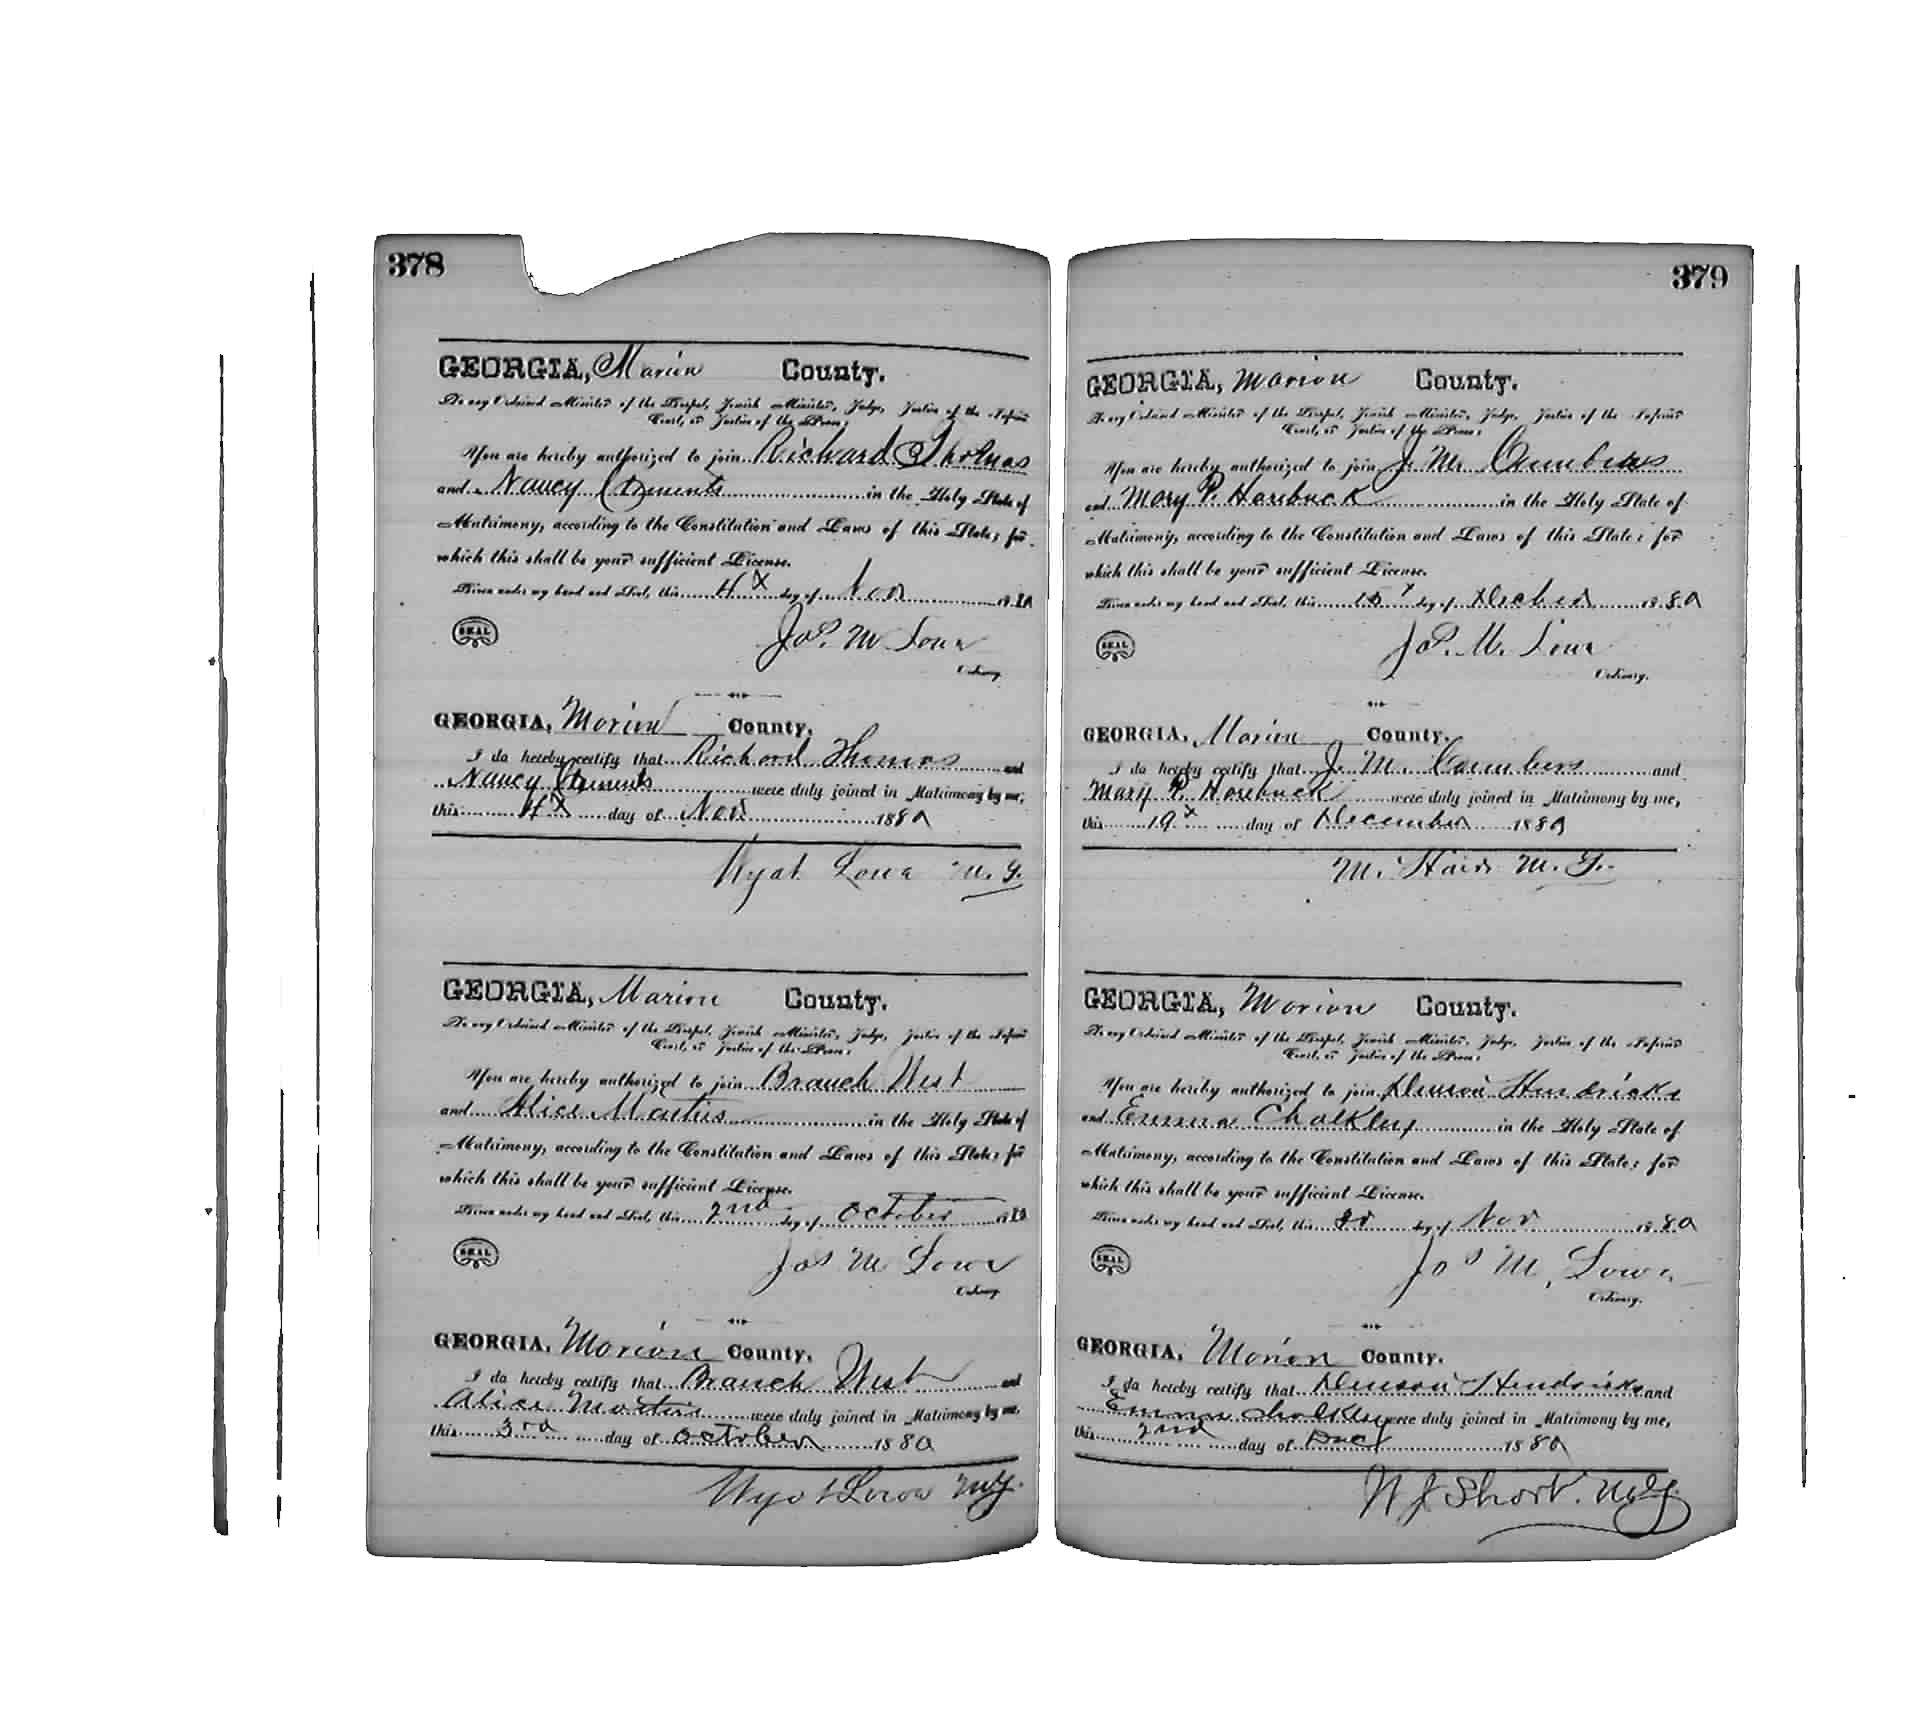 378
GEORGIA, Marion County.
To any Ordained Minister of the Gospel, Jewish Minister, Judge, Justice of the Inferior
Court, or Justice of the Peace:
You are hereby authorized to join Richard Thomas
and Nancy in the Holy State of
Matrimony, according to the Constitution and Laws of this State; for
which this shall be your sufficient License.
Given under my hand and Seal, this 4x day of Nov 1880
SEAL
Jos. M Lowe
Ordinary.
GEORGIA, Marion County.
I do hereby certify that Richard Thomas and
Nancy were duly joined in Matrimony by me,
this 4x day of Nov 1880
Wyat Lowe M. G.
GEORGIA, Marion County.
To any Ordained Minister of the Gospel, Jewish Minister, Judge, Justice of the Inferior
Court, or Justice of the Peace:
You are hereby authorized to join Branch West
and Alice in the Holy State of
Matrimony, according to the Constitution and Laws of this State; for
which this shall be your sufficient License.
Given under my hand and Seal, this 2nd day of October 1880
SEAL
Jos M Lowe
Ordinary.
GEORGIA, Marion County.
I do hereby certify that Branch West and
Alice were duly joined in Matrimony by me,
this 3rd day of October 1880
Wyat Lowe MG.
379
GEORGIA, Marion County.
To any Ordained Minister of the Gospel, Jewish Minister, Judge, Justice of the Inferior
Court, or Justice of the Peace:
You are hereby authorized to join J. M.
and Mary P. Harebuck in the Holy State of
Matrimony, according to the Constitution and Laws of this State; for
which this shall be your sufficient License.
Given under my hand and Seal, this day of 1880
SEAL
Jos. M. Lowe
Ordinary.
GEORGIA, Marion County.
I do hereby certify that J. M. and
Mary P. Harebuck were duly joined in Matrimony by me,
this 19x day of December 1880
M. M. G.
GEORGIA, Marion County.
To any Ordained Minister of the Gospel, Jewish Minister, Judge, Justice of the Inferior
Court, or Justice of the Peace:
You are hereby authorized to join Hendricks
and Emma Chalkley in the Holy State of
Matrimony, according to the Constitution and Laws of this State; for
which this shall be your sufficient License.
Given under my hand and Seal, this day of Nov 1880
SEAL
Jos M. Lowe
Ordinary.
GEORGIA, Marion County.
I do hereby certify that Hendricks and
Emma Chalkley were duly joined in Matrimony by me,
this 2nd day of 1880
W J Short. M.G.